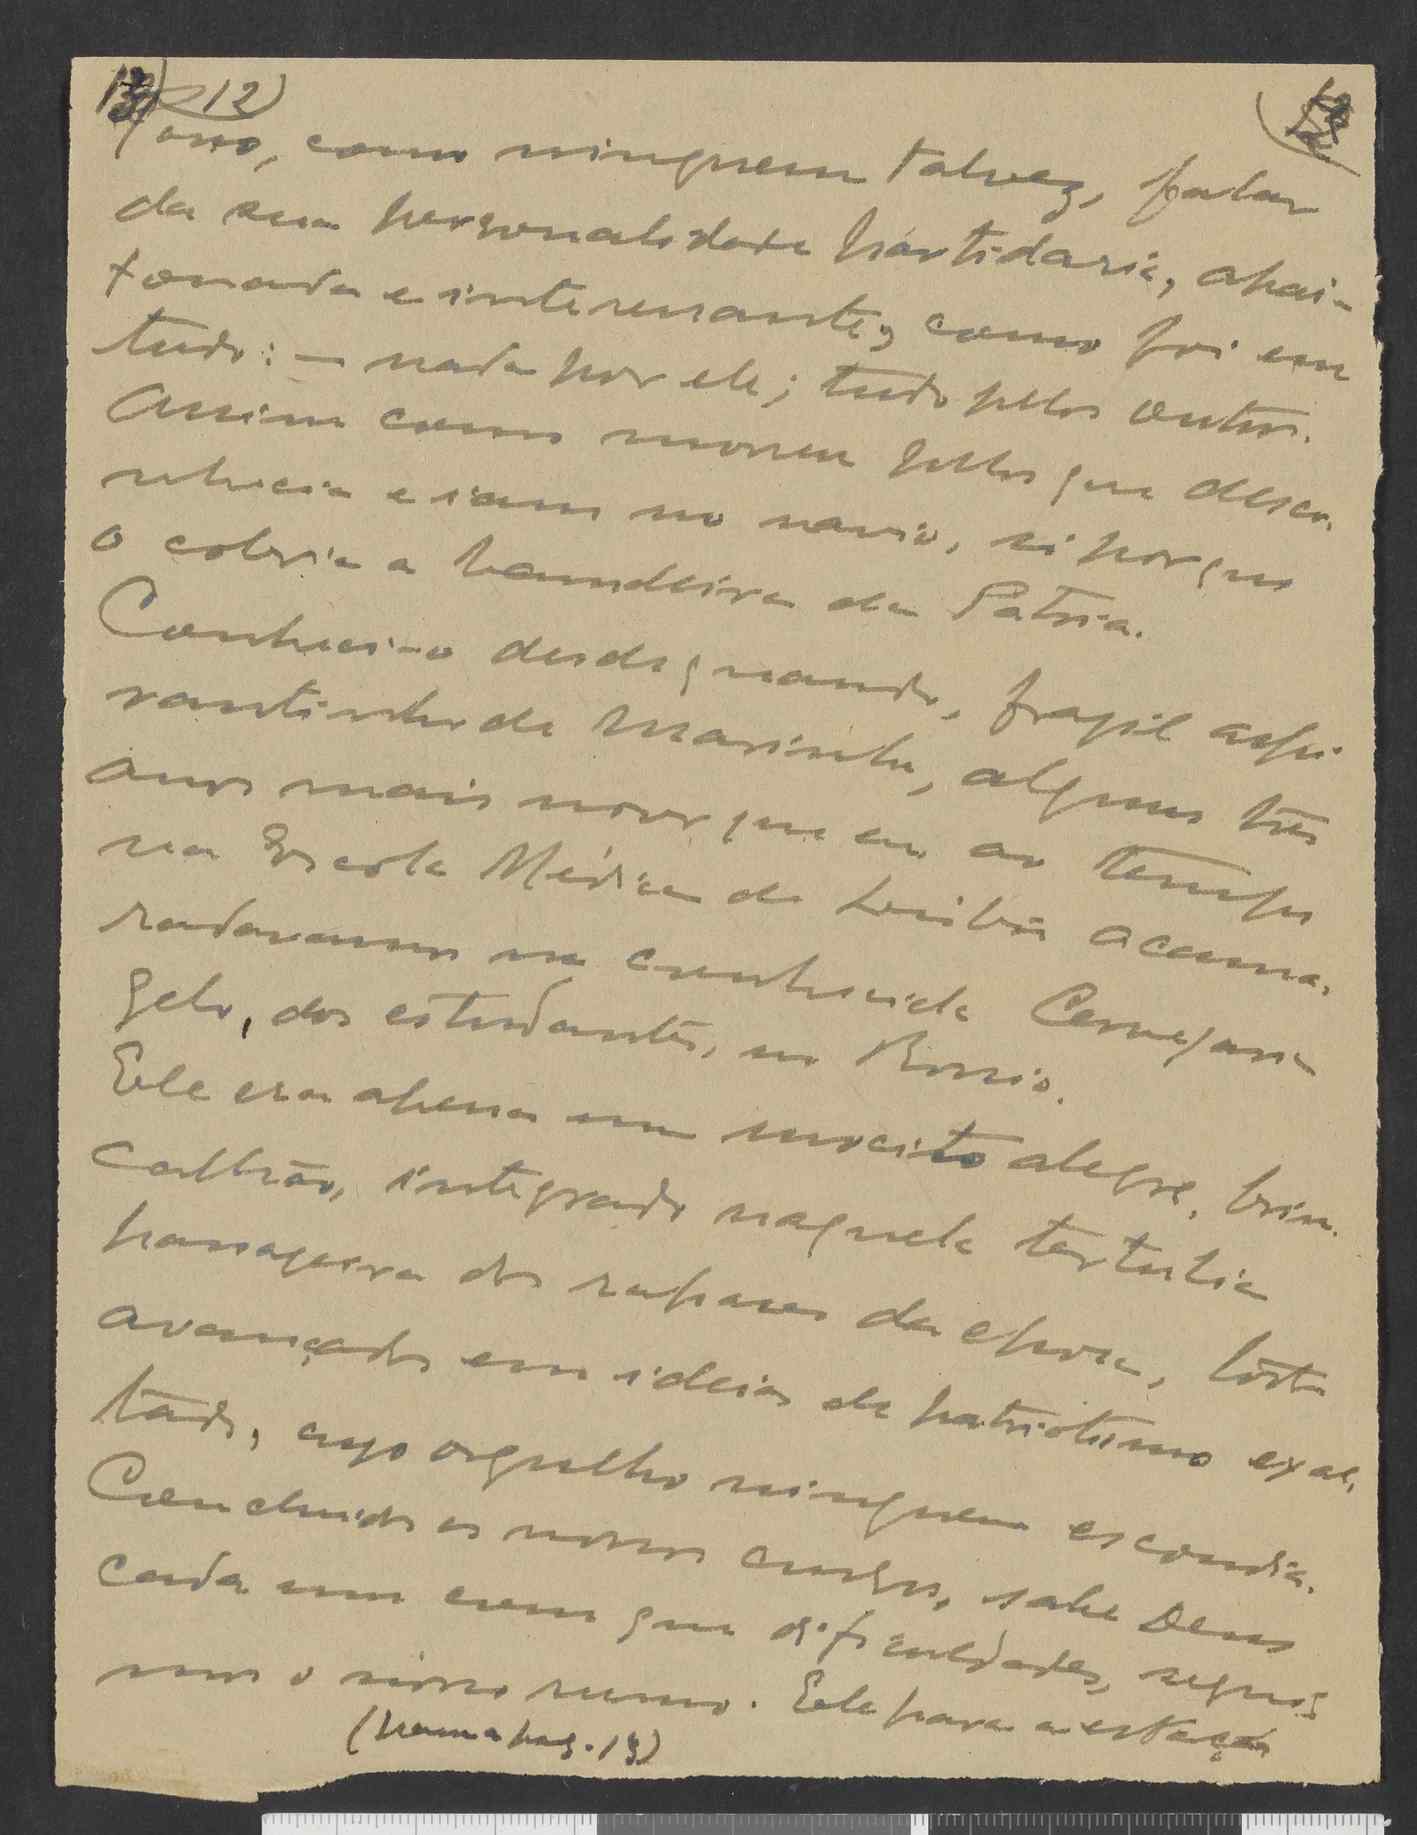 12)
Posso, como ninguem talvez, falar
da sua personalidade partidaria, apai-
xonada e interessante, como foi em
tudo: – nada por ele; tudo pelos outros.
Assim como morreu pelos que desco-
nhecia e iam no navio, si porque
o cobria a bandeira da Patria.
Conheci-o desde quando, fragil aspi
rantinho de Marinha, alguns três
anos mais novo que eu ao tempo
na Escola Médica de Lisboa acama-
radavamos na conhecida Cervejaria
Gelo, dos estudantes, no Rossio.
Ele era apenas um mocito alegre, brin-
calhão, integrado naquela tertulia
panageira dos rapazes da epoca,
avançados em ideias de patriotismo exal-
tado, cujo orgulho ninguem escondia.
Concluidos os nossos cursos, sabe Deus
cada um com que dificuldades, segui-
mos o nosso rumo. Ele para a estação
(para a pag. 13)